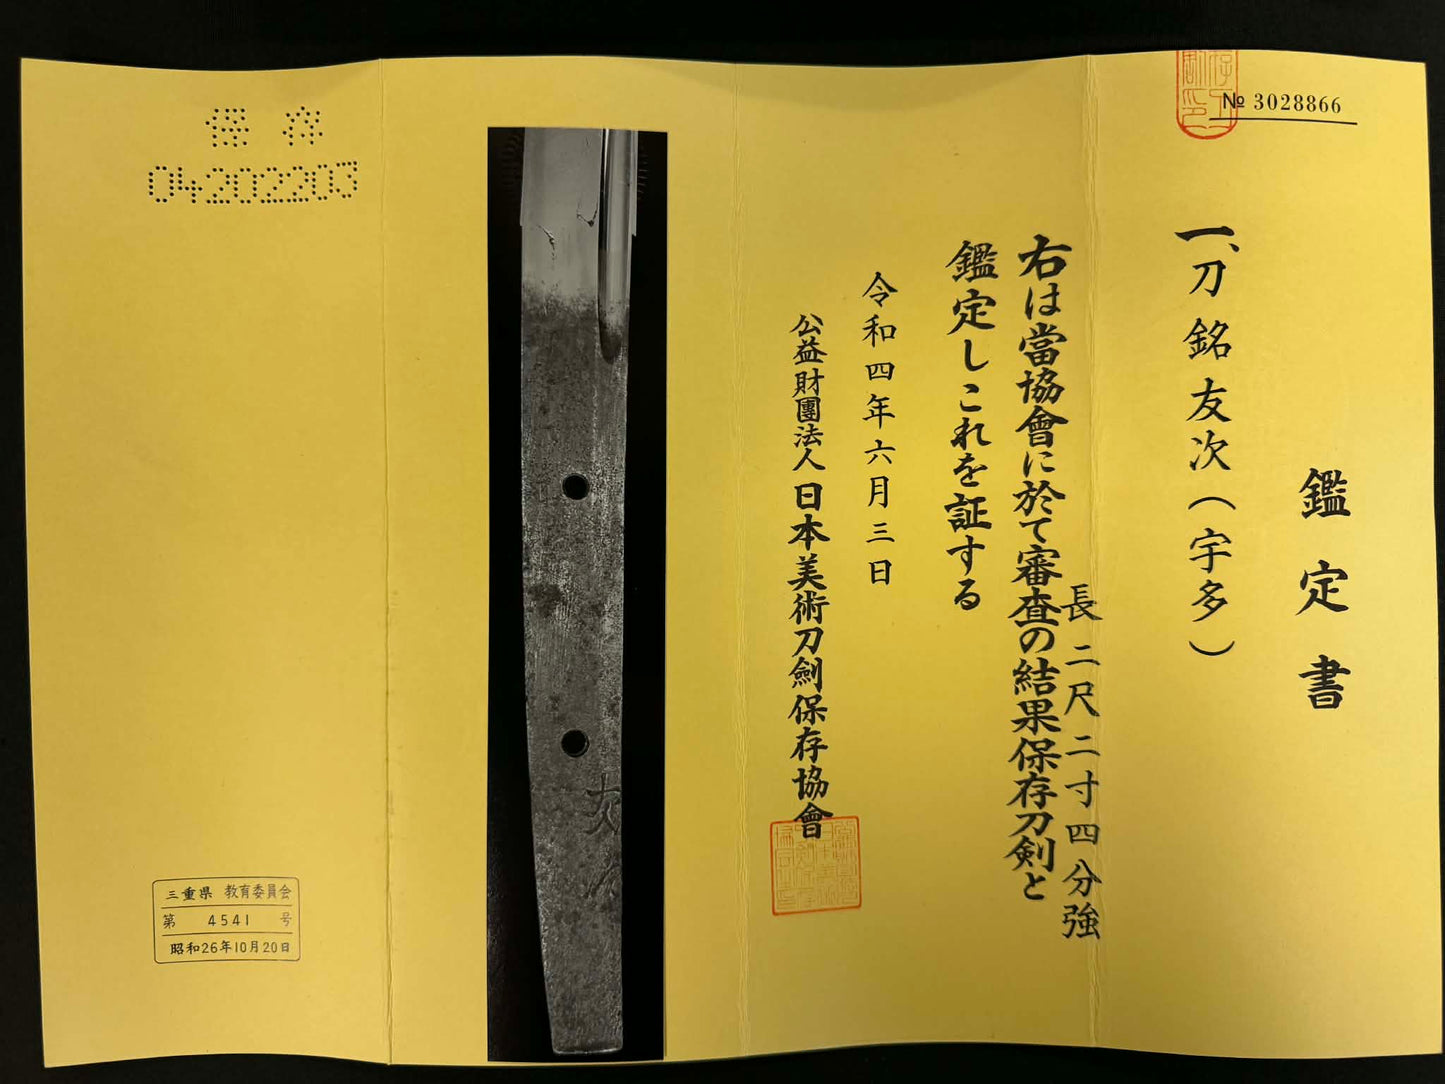 № 3028866
鑑定書
一、刀 銘 友次(宇多)
長 二尺二寸四分強
右は當協會に於て審査の結果保存刀剣と
鑑定しこれを証する
令和四年六月三日
公益財團法人 日本美術刀劍保存協會
友次
保存
04202203
三重県 教育委員会
第 4541 号
昭和26年10月20日